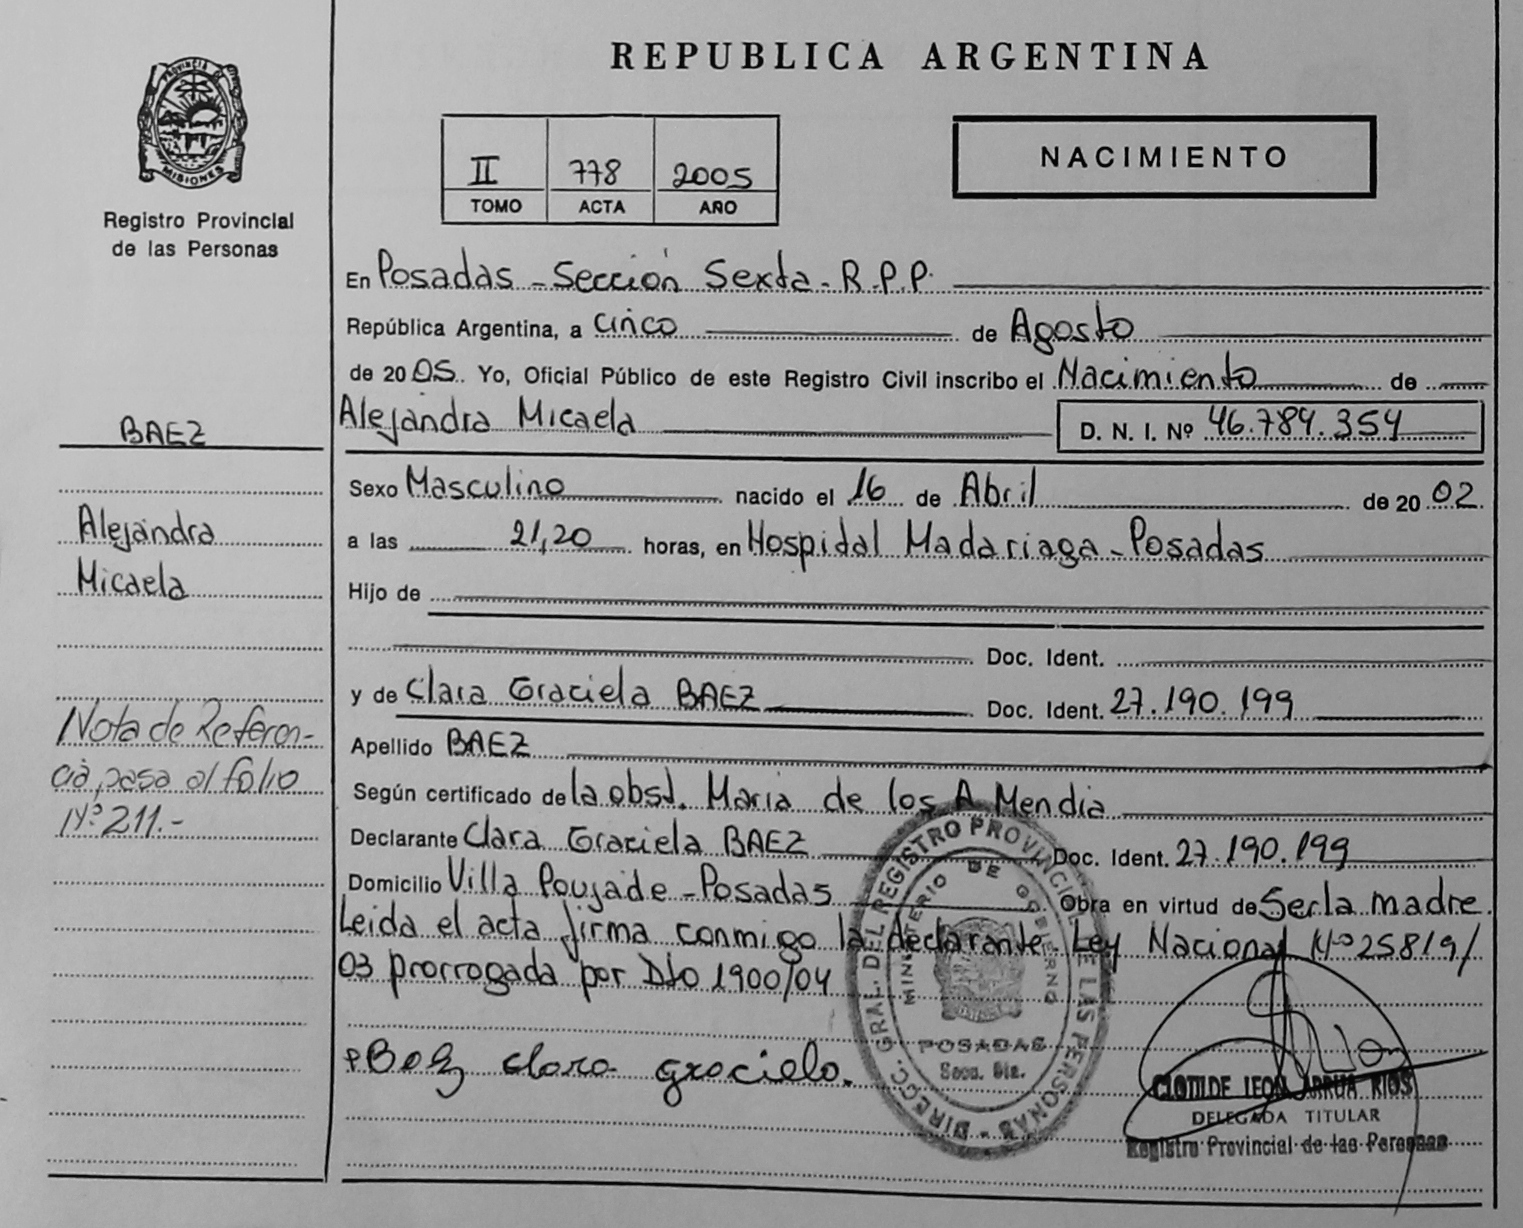 REPUBLICA ARGENTINA
PROVINCIA DE
MISIONES
Registro Provincial
de las Personas
II 778 2005
TOMO ACTA AÑO
NACIMIENTO
En Posadas - Sección Sexta - R.P.P.
República Argentina, a cinco de Agosto
de 20 05. Yo, Oficial Público de este Registro Civil inscribo el Nacimiento de
Alejandra Micaela D. N. I. Nº 46.784.354
BAEZ
Alejandra
Micaela
Nota de Referen-
cia, pasa al folio
Nº 211.-
Sexo Masculino nacido el 16 de Abril de 20 02
a las 21,20 horas, en Hospidal Madariaga - Posadas
Hijo de
Doc. Ident.
y de Clara Graciela BAEZ Doc. Ident. 27.190.199
Apellido BAEZ
Según certificado de la obst. Maria de los A Mendia
Declarante Clara Graciela BAEZ Doc. Ident. 27.190.199
Domicilio Villa Poujade - Posadas Obra en virtud de Ser la madre.
Leida el acta firma conmigo la declarante. Ley Nacional Nº 25819/
03 prorrogada por Dto 1900/04
Baez clara graciela.
DIRECC. GRAL. DEL REGISTRO PROVINCIAL DE LAS PERSONAS
MINISTERIO DE GOBIERNO
POSADAS
Secc. 6ta.
CLOTILDE LEON ARRUA RIOS
DELEGADA TITULAR
Registro Provincial de las Personas